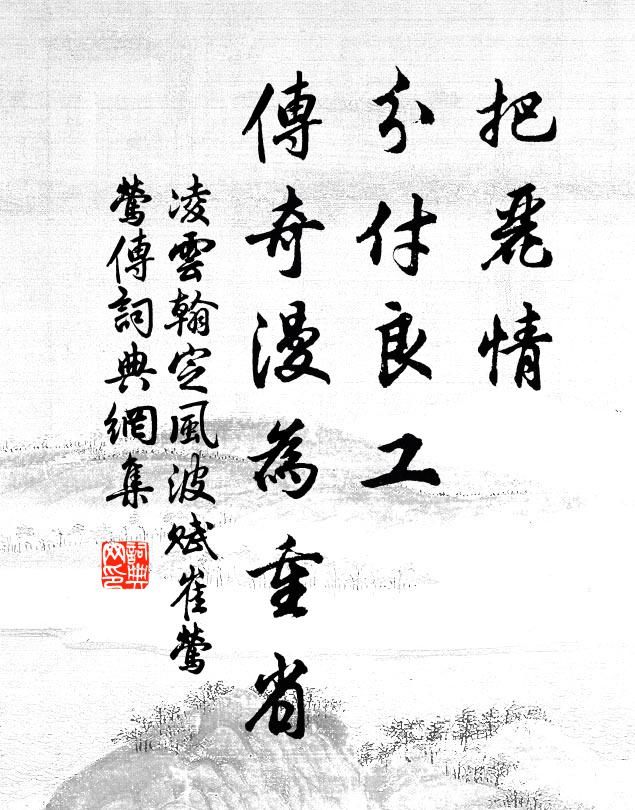 把麗情
分付良工
傳奇漫為重省
凌雲翰定風波賦崔鶯
鶯傳詞典網集
詞典